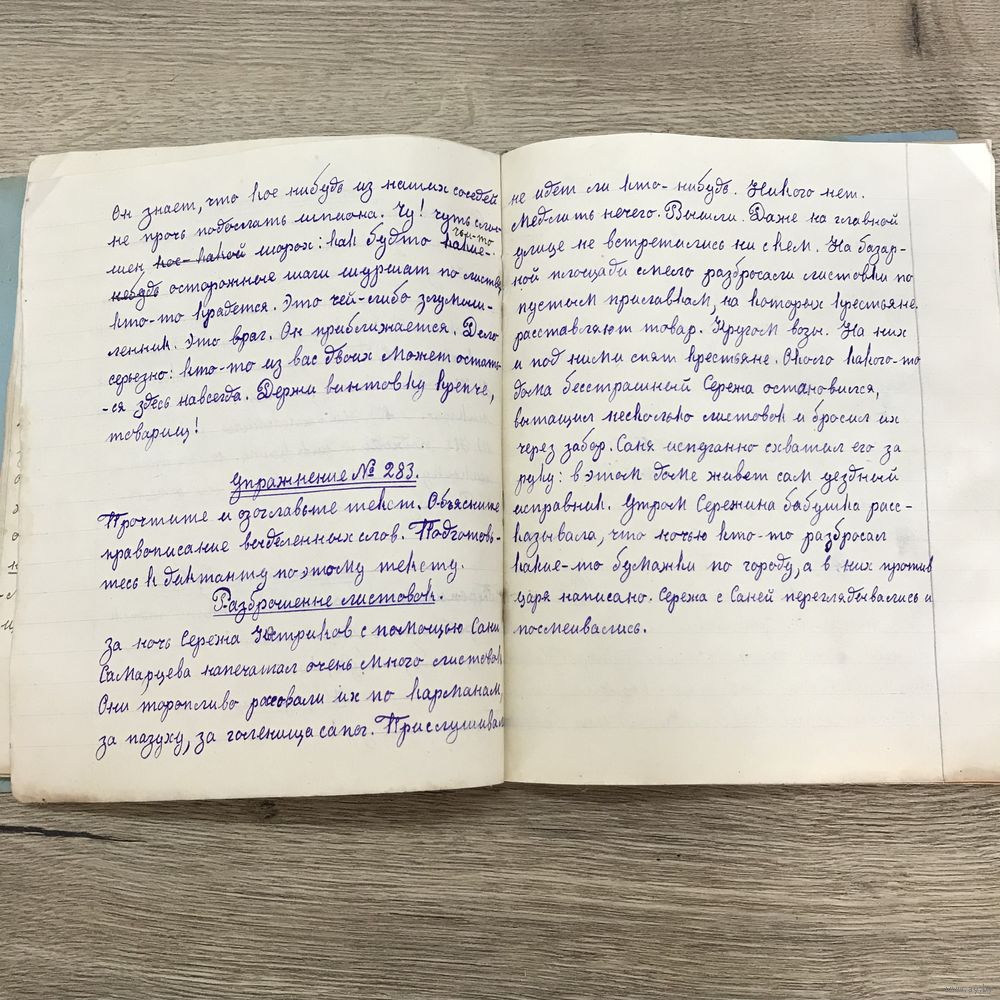 Он знает, что кое нибудь из наших соседей
не прочь подослать шпиона. Чу! Чуть слыш-
шен кое-какой шорох: как будто какие-
чьи-то
небудь осторожные шаги шуршат по листве,
кто-то крадется. Это чей-либо злумыш-
ленник. Это враг. Он приближается. Дело
серьезно: кто-то из вас двоих может остать-
-ся здесь навсегда. Держи винтовку крепче,
товарищ!
Упражнение № 283.
Прочтите и озоглавьте текст. Объясните
правописание выделенных слов. Подготовь-
тесь к диктанту по этому тексту.
Разброшенне листовок.
За ночь Сережа Устриков с помощью Сани
Самарцева напечатал очень много листовок
Они торопливо рассовали их по карманам,
за пазуху, за голенища сапог. Прислушивал
не идет ли кто-нибудь. Никого нет.
Медлить нечего. Вышли. Даже на главной
улице не встретились ни с кем. На базар-
ной площади смело разбросали листовки по
пустым прилавкам, на которых крестьяне
расставляют товар. Кругом возы. На них
и под ними спят крестьяне. Около какого-то
дома бесстрашный Сережа остановился,
вытащил несколько листовок и бросил их
через забор. Саня испуганно схватил его за
руку: в этом доме живет сам уездный
исправник. Утром Сережина бабушка расс-
казывала, что ночью кто-то разбросал
какие-то бумажки по городу, а в них против
царя написано. Сережа с Саней переглядывались и
посмеивались.